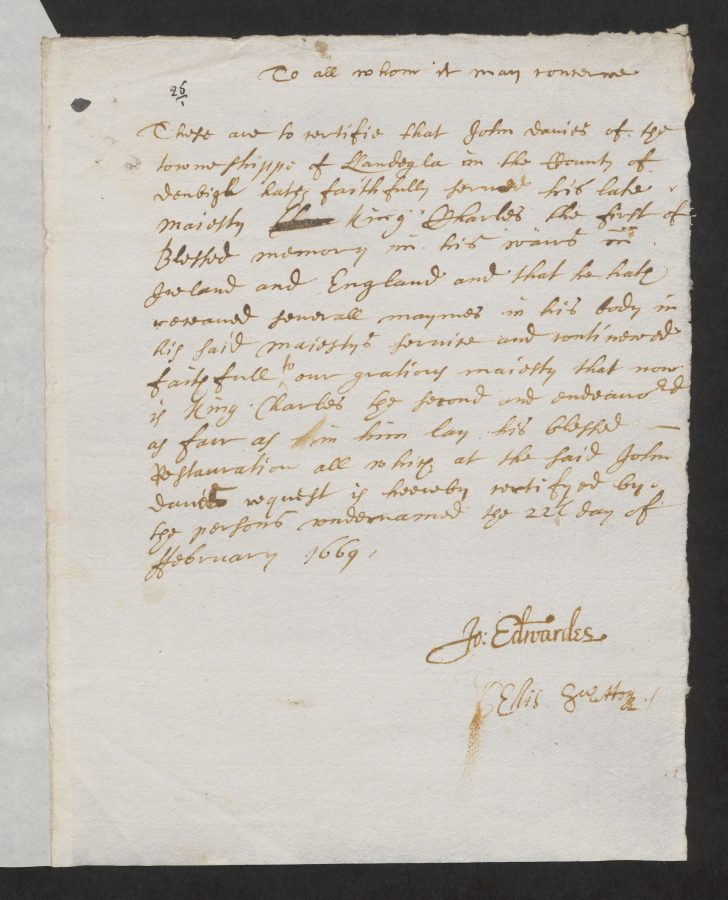 To all whom it may concerne
26
1
These are to certifie that John davies of the
towneshippe of Llandegla in the County of
denbigh hath faithfully served his late
maiesty King Charles the first of
Blessed memory in his wars in
Ireland and England and that he hath
receaved severall maymes in his body in
his said maiestys service and continewed
faithfull to our gratious maiesty that now
is King Charles the second and endeavored
as farr as in him lay his blessed
Restauration all which at the said John
davies request is heereby certifyed by
the persons undernamed the 22th day of
ffebruary 1669
Jo: Edwardes
Ellis Sutton